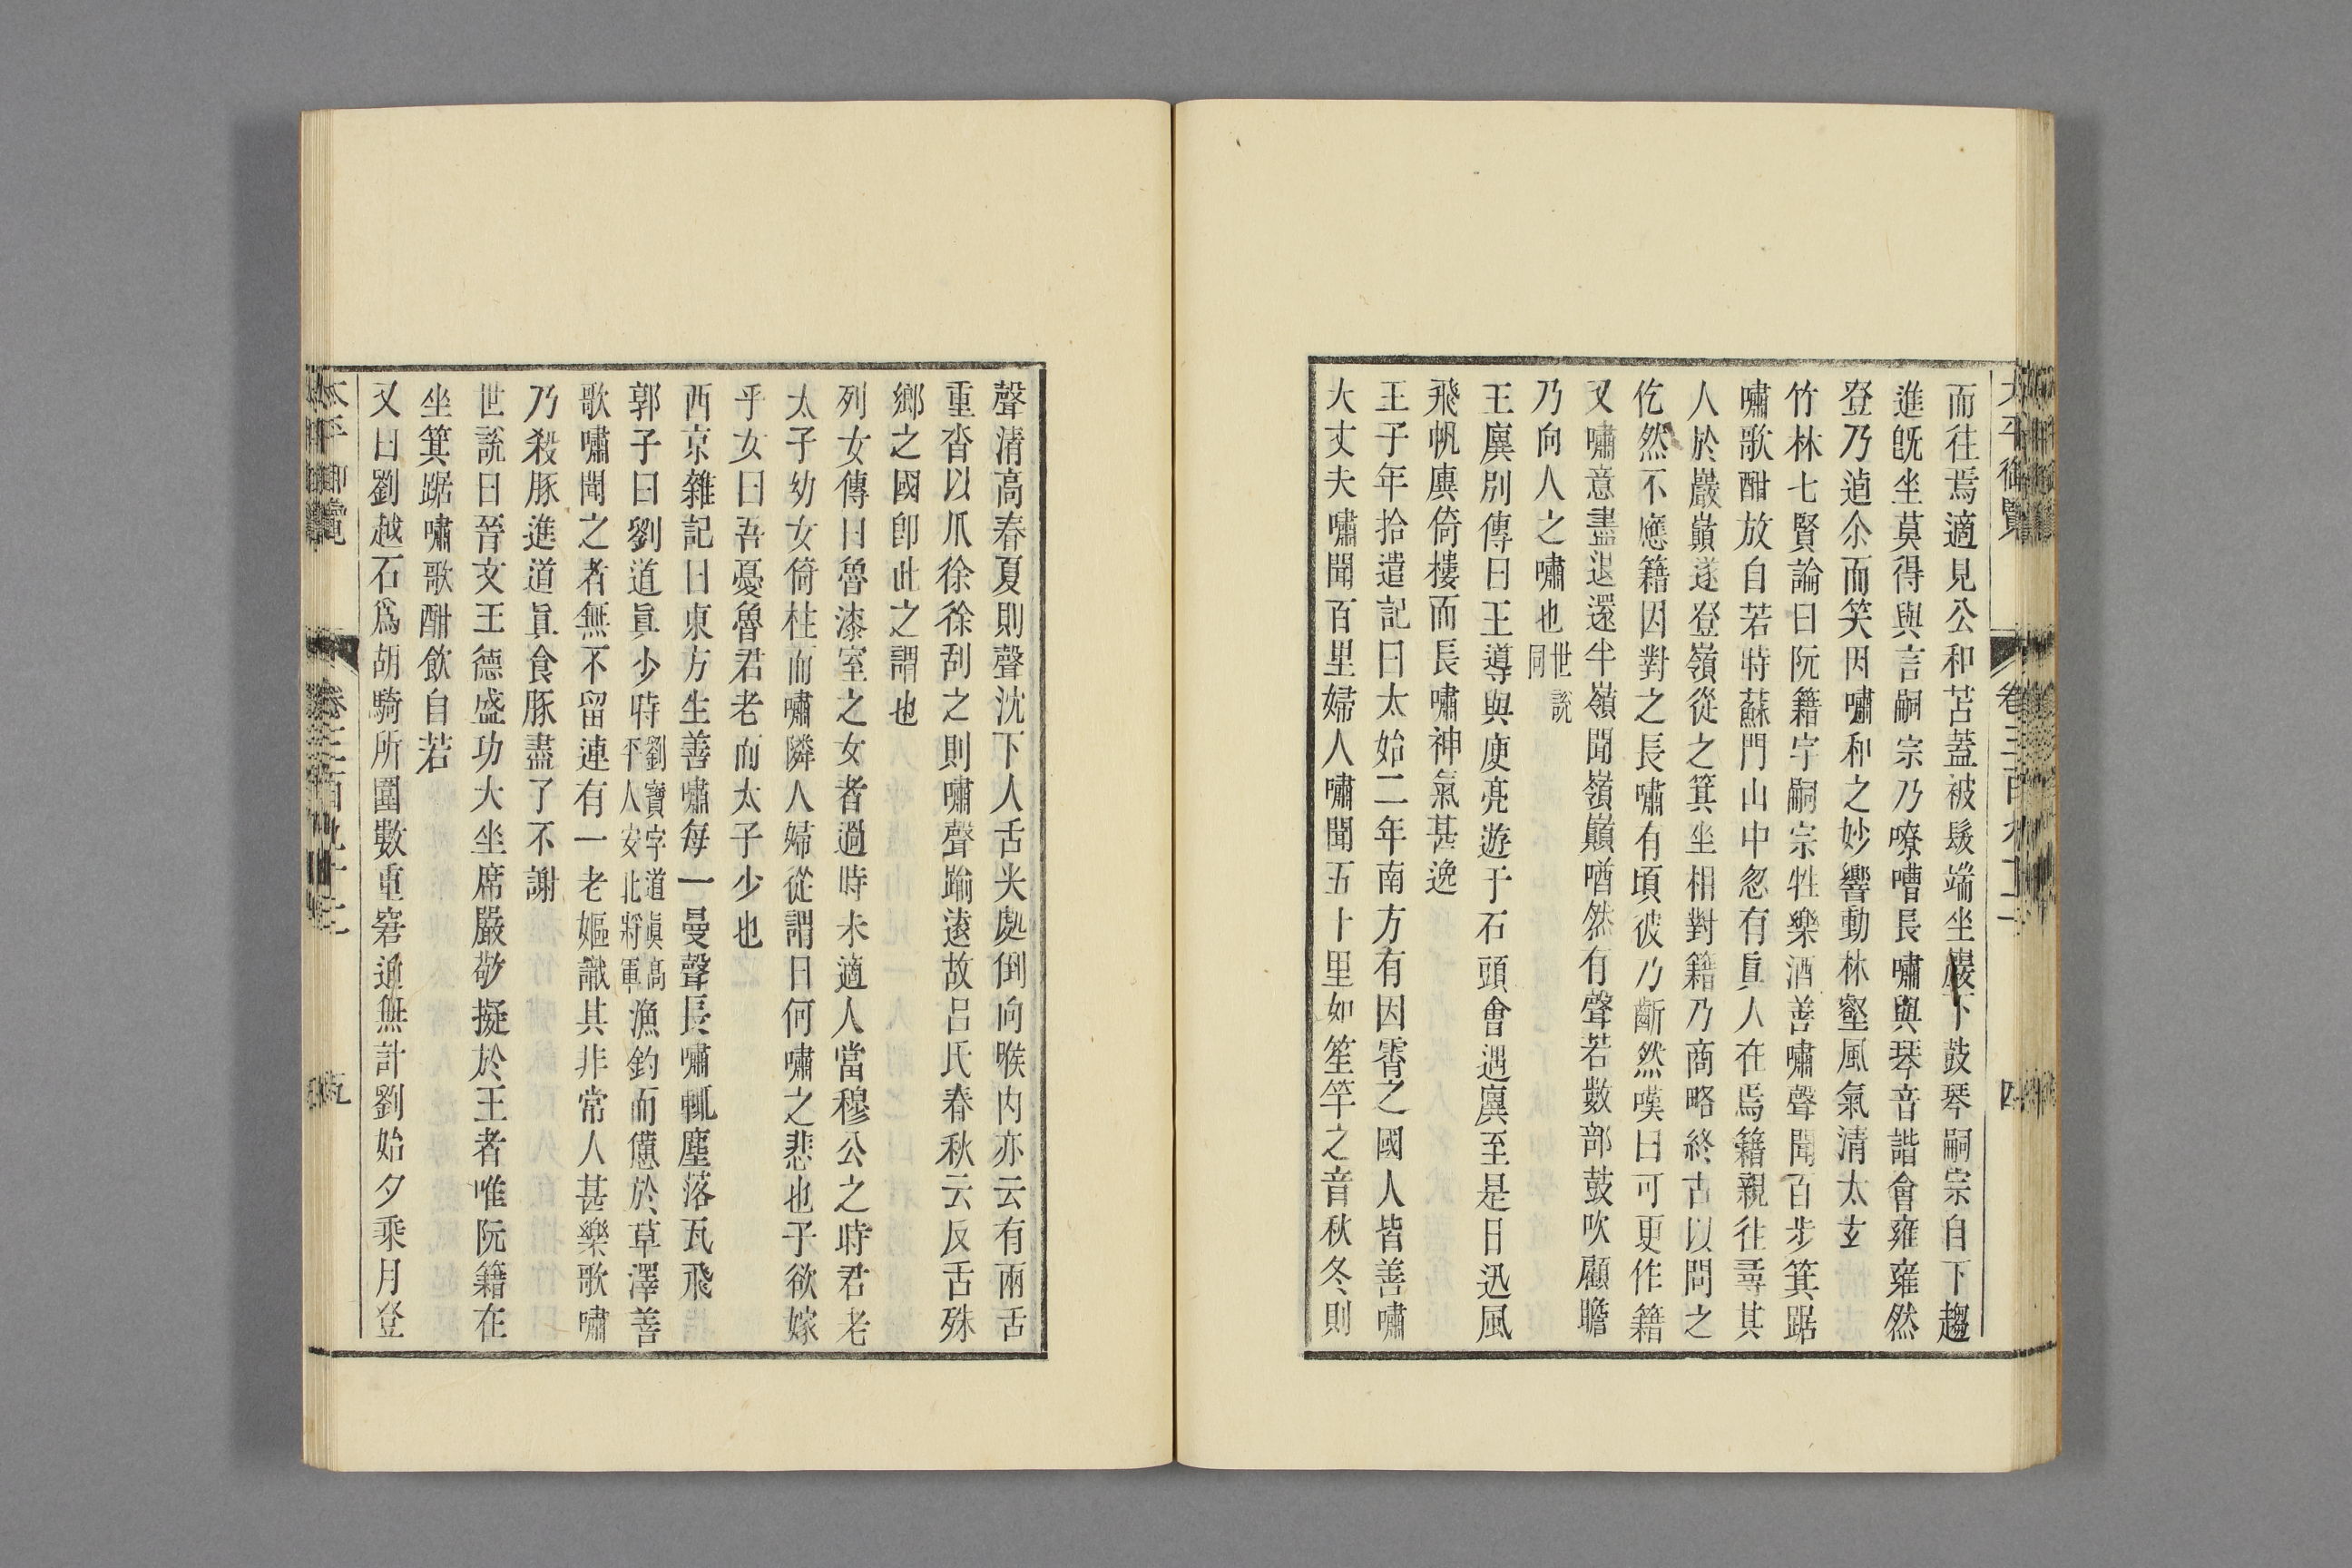 而往焉適見公和苫蓋被髮端坐巖下鼓琴嗣宗自下趨
進旣坐莫得與言嗣宗乃嘹嘈長嘯與琴音諧會雍雍然
登乃逌尒而笑因嘯和之妙響動林壑風氣清太玄
竹林七賢論曰阮籍字嗣宗性樂酒善嘯聲聞百步箕踞
嘯歌酣放自若時蘇門山中忽有眞人在焉籍親往尋其
人於巖巔遂登嶺從之箕坐相對籍乃商略終古以問之
仡然不應籍因對之長嘯有頃彼乃齗然嘆曰可更作籍
又嘯意盡退還半嶺聞嶺巔㗜然有聲若數部鼓吹顧瞻
乃向人之嘯也世説同
王廙別傳曰王導與庾亮遊于石頭會遇廙至是日迅風
飛帆廙倚樓而長嘯神氣甚逸
王子年拾遺記曰太始二年南方有因霄之國人皆善嘯
大丈夫嘯聞百里婦人嘯聞五十里如笙竽之音秋冬則
聲清高春夏則聲沈下人舌尖處倒向喉内亦云有兩舌
重沓以爪徐徐刮之則嘯聲踰遠故呂氏春秋云反舌殊
鄉之國卽此之謂也
列女傳曰魯漆室之女者過時未適人當穆公之時君老
太子幼女倚柱而嘯隣人婦從謂曰何嘯之悲也子欲嫁
乎女曰吾憂魯君老而太子少也
西京雜記曰東方生善嘯每一曼聲長嘯輒塵落瓦飛
郭子曰劉道眞少時劉寶字道眞高平人安北將軍漁釣而憶於草澤善
歌嘯聞之者無不留連有一老嫗識其非常人甚樂歌嘯
乃殺豚進道眞食豚盡了不謝
世説曰晉文王德盛功大坐席嚴敬擬於王者唯阮籍在
坐箕踞嘯歌酣飲自若
又曰劉越石爲胡騎所圍數重窘迫無計劉始夕乘月登